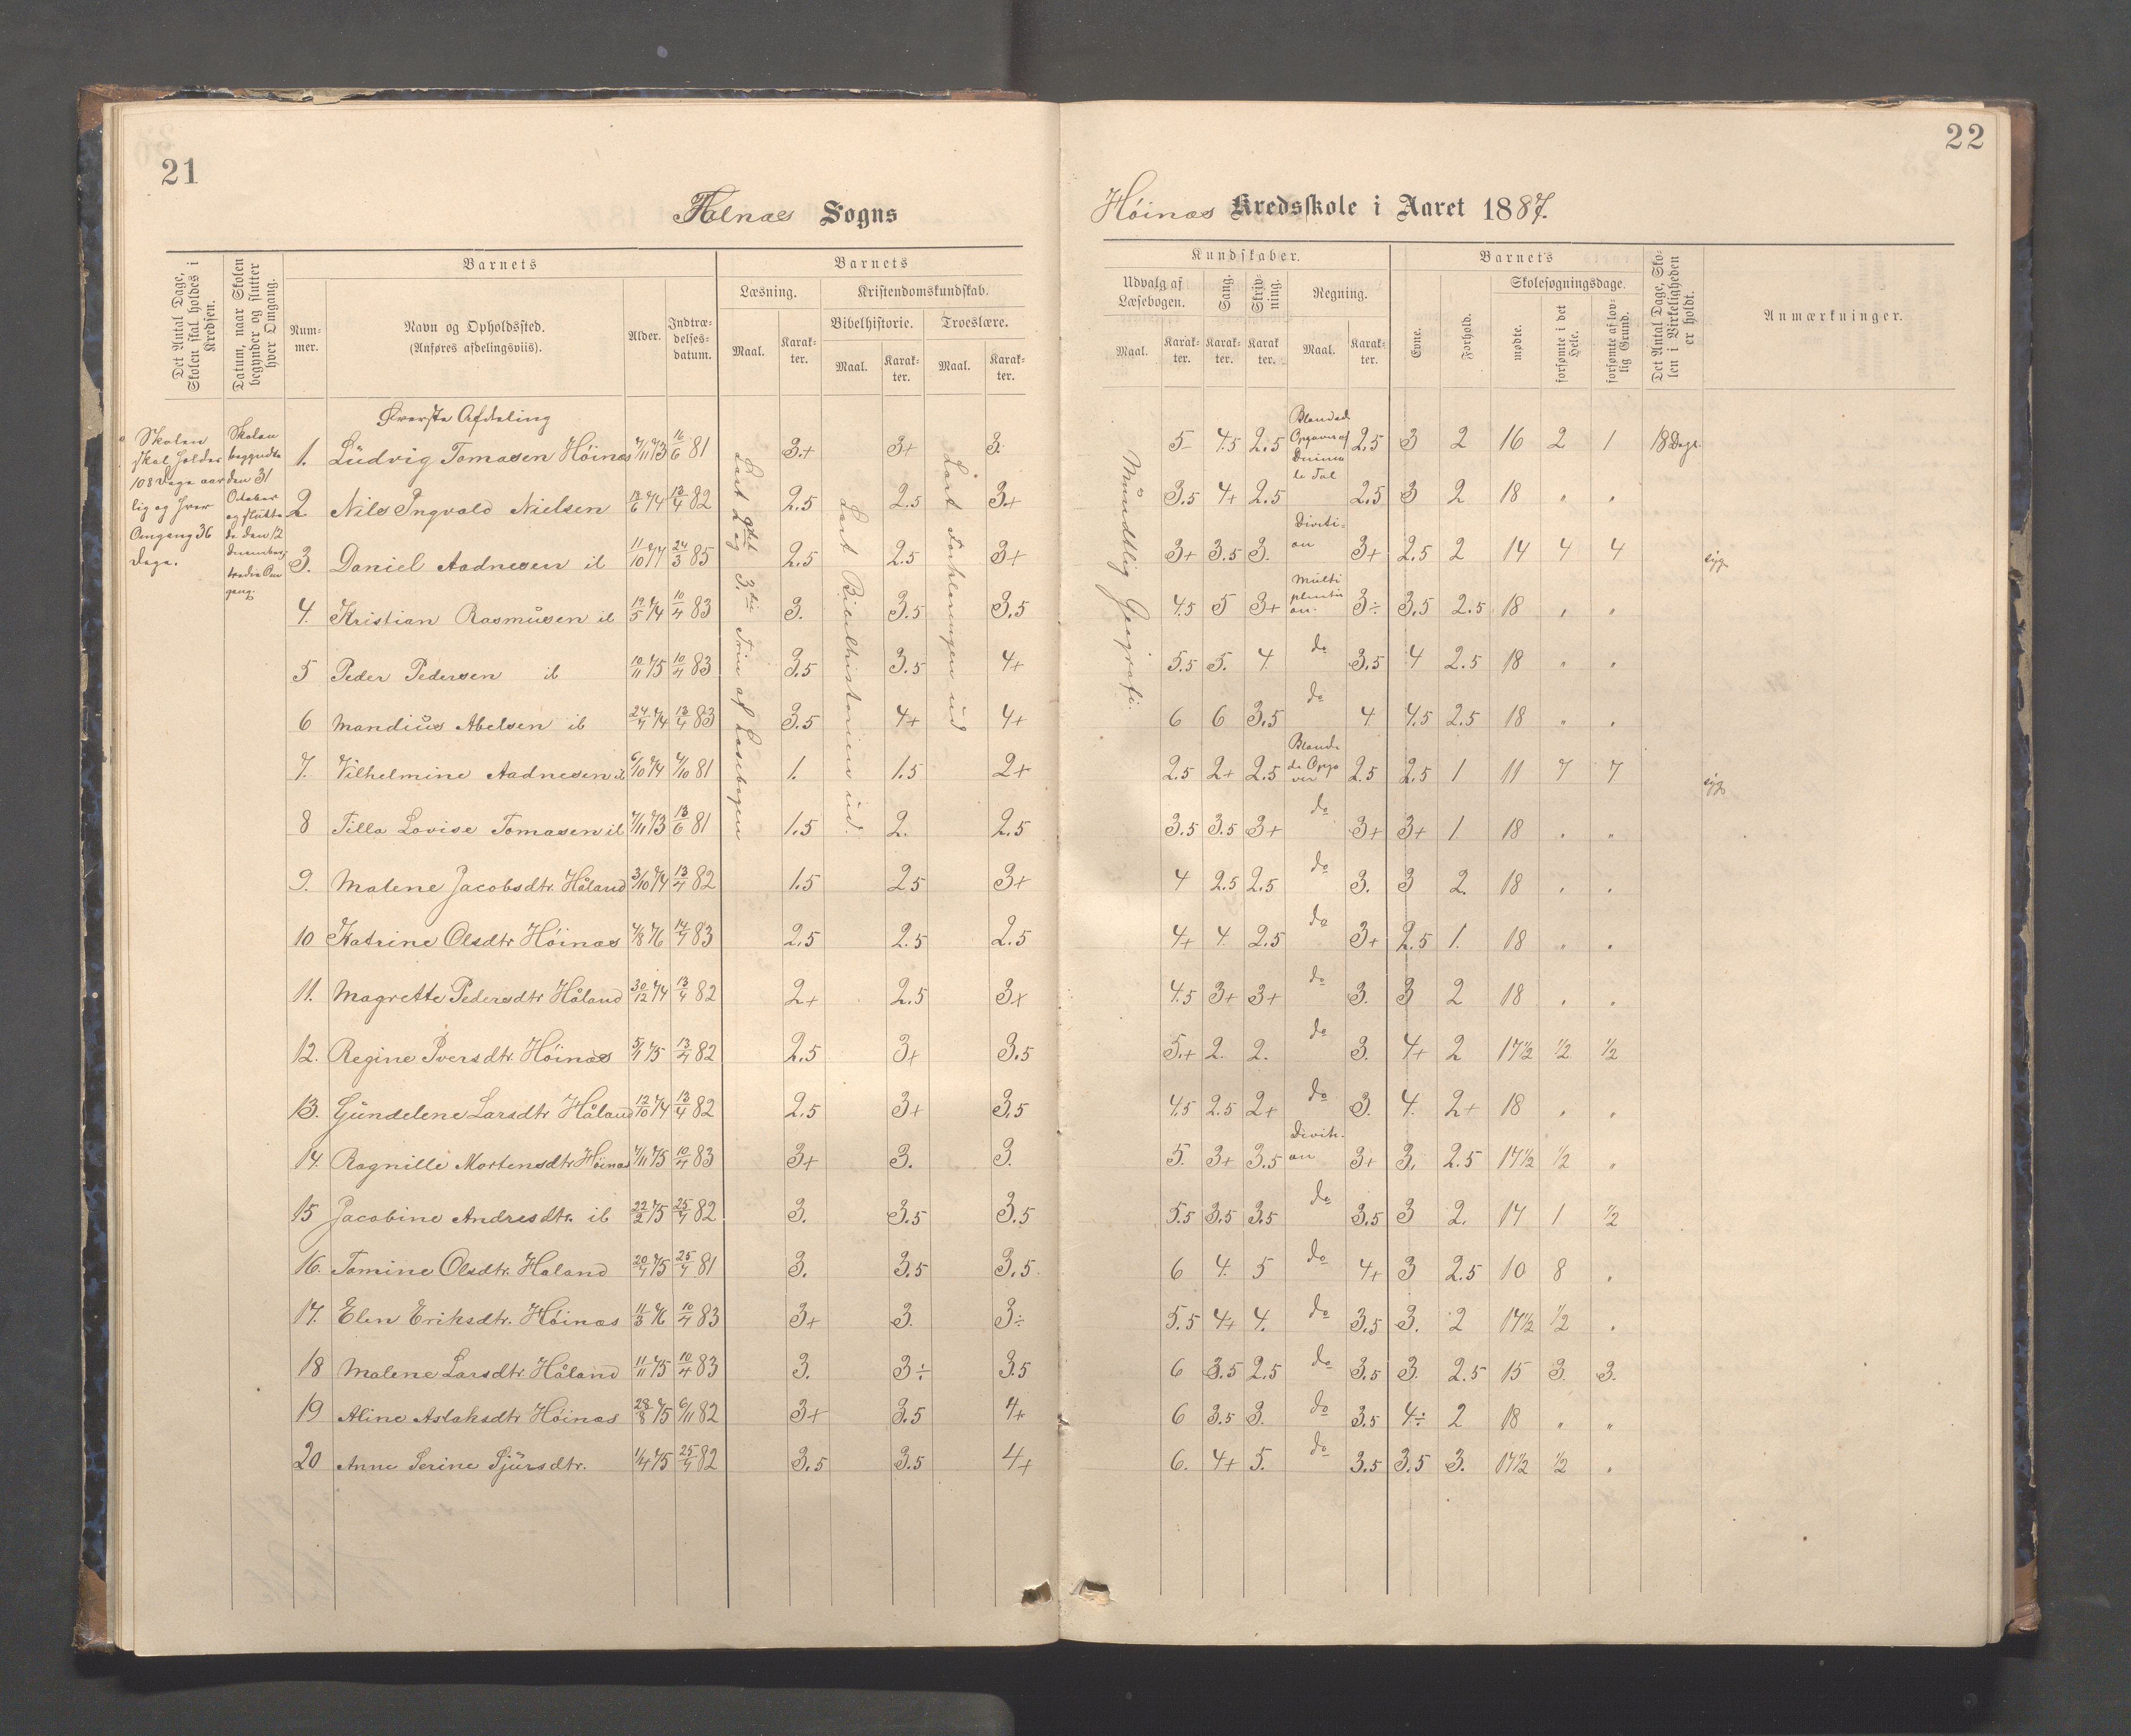 21
22
Falnæs Sogns
Høinæs Kredsskole i Aaret 1887.
Det Antal Dage, Skolen skal holdes i Kredsen.
Datum, naar Skolen begynder og slutter hver Omgang.
Barnets
Num-mer.
Navn og Opholdssted.
(Anføres afdelingsviis).
Alder.
Indtræ-delses-datum.
Barnets
Læsning.
Maal.
Karak-ter.
Kristendomskundskab.
Bibelhistorie.
Maal.
Karak-ter.
Troeslære.
Maal.
Karak-ter.
Kundskaber.
Udvalg af Læsebogen.
Maal.
Karak-ter.
Sang.
Karak-ter.
Skriv-ning.
Karak-ter
Regning.
Maal.
Karak-ter.
Barnets
Evne.
Forhold.
Skolesøgningsdage.
mødte.
forsømte i det Hele.
forsømte af lov-lig Grund.
Det Antal Dage, Sko-len i Virkeligheden er holdt.
Anmærkninger.
Skolen
skal holdes
108 Dage aar
lig og hver
Omgang 36
Dage.
Skolen
begyndte
den 31
October
og slutte
de den 12
December,
tredie Om
gang.
Øverste Afdeling
Læst 2 og 3die Trin af Læsebogen
Læst Bibelhistorien ud.
Læst Forklaringen ud
Mundtlig Geografi.
1. Ludvig Tomasen Høinæs 7/11 73 16/6 81 3+ 3+ 3. 5- 4.5 2.5 Blandede Opgaver af Decimale Tal 2.5 3 2 16 2 1 18 Dage.
2 Nils Ingvald Nielsen 18/6 74 13/4 82 2.5 2.5 3+ 3.5 4+ 2.5 2.5 3 2 18 " "
3. Daniel Aadnesen ib 11/10 74 24/3 85 2.5 2.5 3+ 3+ 3.5 3. Divisi-on 3+ 2.5 2 14 4 4 syg.
4. Kristian Rasmusen ib 19/5 74 10/4 83 3. 3.5 3.5 4.5 5 3+ Multiplication. 3÷ 3.5 2.5 18 " "
5 Peder Pedersen ib 10/11 75 10/4 83 3.5 3.5 4+ 5.5 5. 4. do 3.5 4 2.5 18 " "
6 Mandius Abelsen ib 24/4 74 13/4 83 3.5 4+ 4+ 6 6 3.5 do 4 4.5 2.5 18 " "
7. Vilhelmine Aadnesen ib 6/10 74 4/10 81 1. 1.5 2+ 2.5 2+ 2.5 Blandede Opgaver 2.5 2.5 1 11 7 7 syg
8 Tilla Lovise Tomasen ib 7/11 73 13/6 81 1.5 2. 2.5 3.5 3.5 3+ do 3+ 3+ 1 18 " "
9. Malene Jacobsdtr. Håland 3/10 74 13/4 82 1.5 2.5 3+ 4 2.5 2.5 do 3. 3 2. 18 " "
10 Katrine Olsdtr Høinæs 4/8 76 14/4 83 2.5 2.5 2.5 4+ 4. 2.5 do 3+ 2.5 1. 18 " "
11. Magrette Pedersdtr Håland 30/12 74 13/4 82 2+ 2.5 3+ 4.5 3+ 3+ do 3. 3 2 18 " "
12. Regine Iversdtr. Høinæs 5/1 75 13/4 82 2.5 3+ 3.5 5.+ 2. 2. do 3. 4+ 2 17 1/2 1/2 1/2
13. Gundelene Larsdtr Håland 12/10 74 13/4 82 2.5 3+ 3.5 4.5 2.5 2+ do 3. 4. 2+ 18 " "
14. Ragnille Mortensdtr Høinæs 7/11 75 10/4 83 3+ 3. 3. 5. 3+ 3.5 Divisi-on 3+ 3. 2.5 17 1/2 1/2 "
15 Jacobine Andresdtr. ib 22/2 75 25/4 82 3. 3.5 3.5 5.5 3.5 3.5 do 3.5 3 2. 17 1 1/2
16. Tomine Olsdtr. Håland 20/4 75 25/4 81 3. 3.5 3.5 6 4. 5 do 4+ 3 2.5 10 8 "
17. Elen Eriksdtr. Høinæs 11/3 76 10/4 83 3+ 3. 3÷ 5.5 4+ 4. do 3.5 3. 2 17 1/2 1/2 "
18 Malene Larsdtr. Håland 11/11 75 10/4 83 3. 3÷ 3.5 6 3.5 2.5 do 3.5 3. 2.5 15 3. 3.
19 Aline Aslaksdtr Høinæs 28/8 75 6/11 82 3+ 3.5 4+ 6 3.5 3. do 3.5 4÷ 2 18 " "
20 Anne Serine Sjursdtr. 1/4 75 25/4 82 3.5 3.5 4+ 6. 4+ 5. do 3.5 3.5 3. 17 1/2 1/2 "